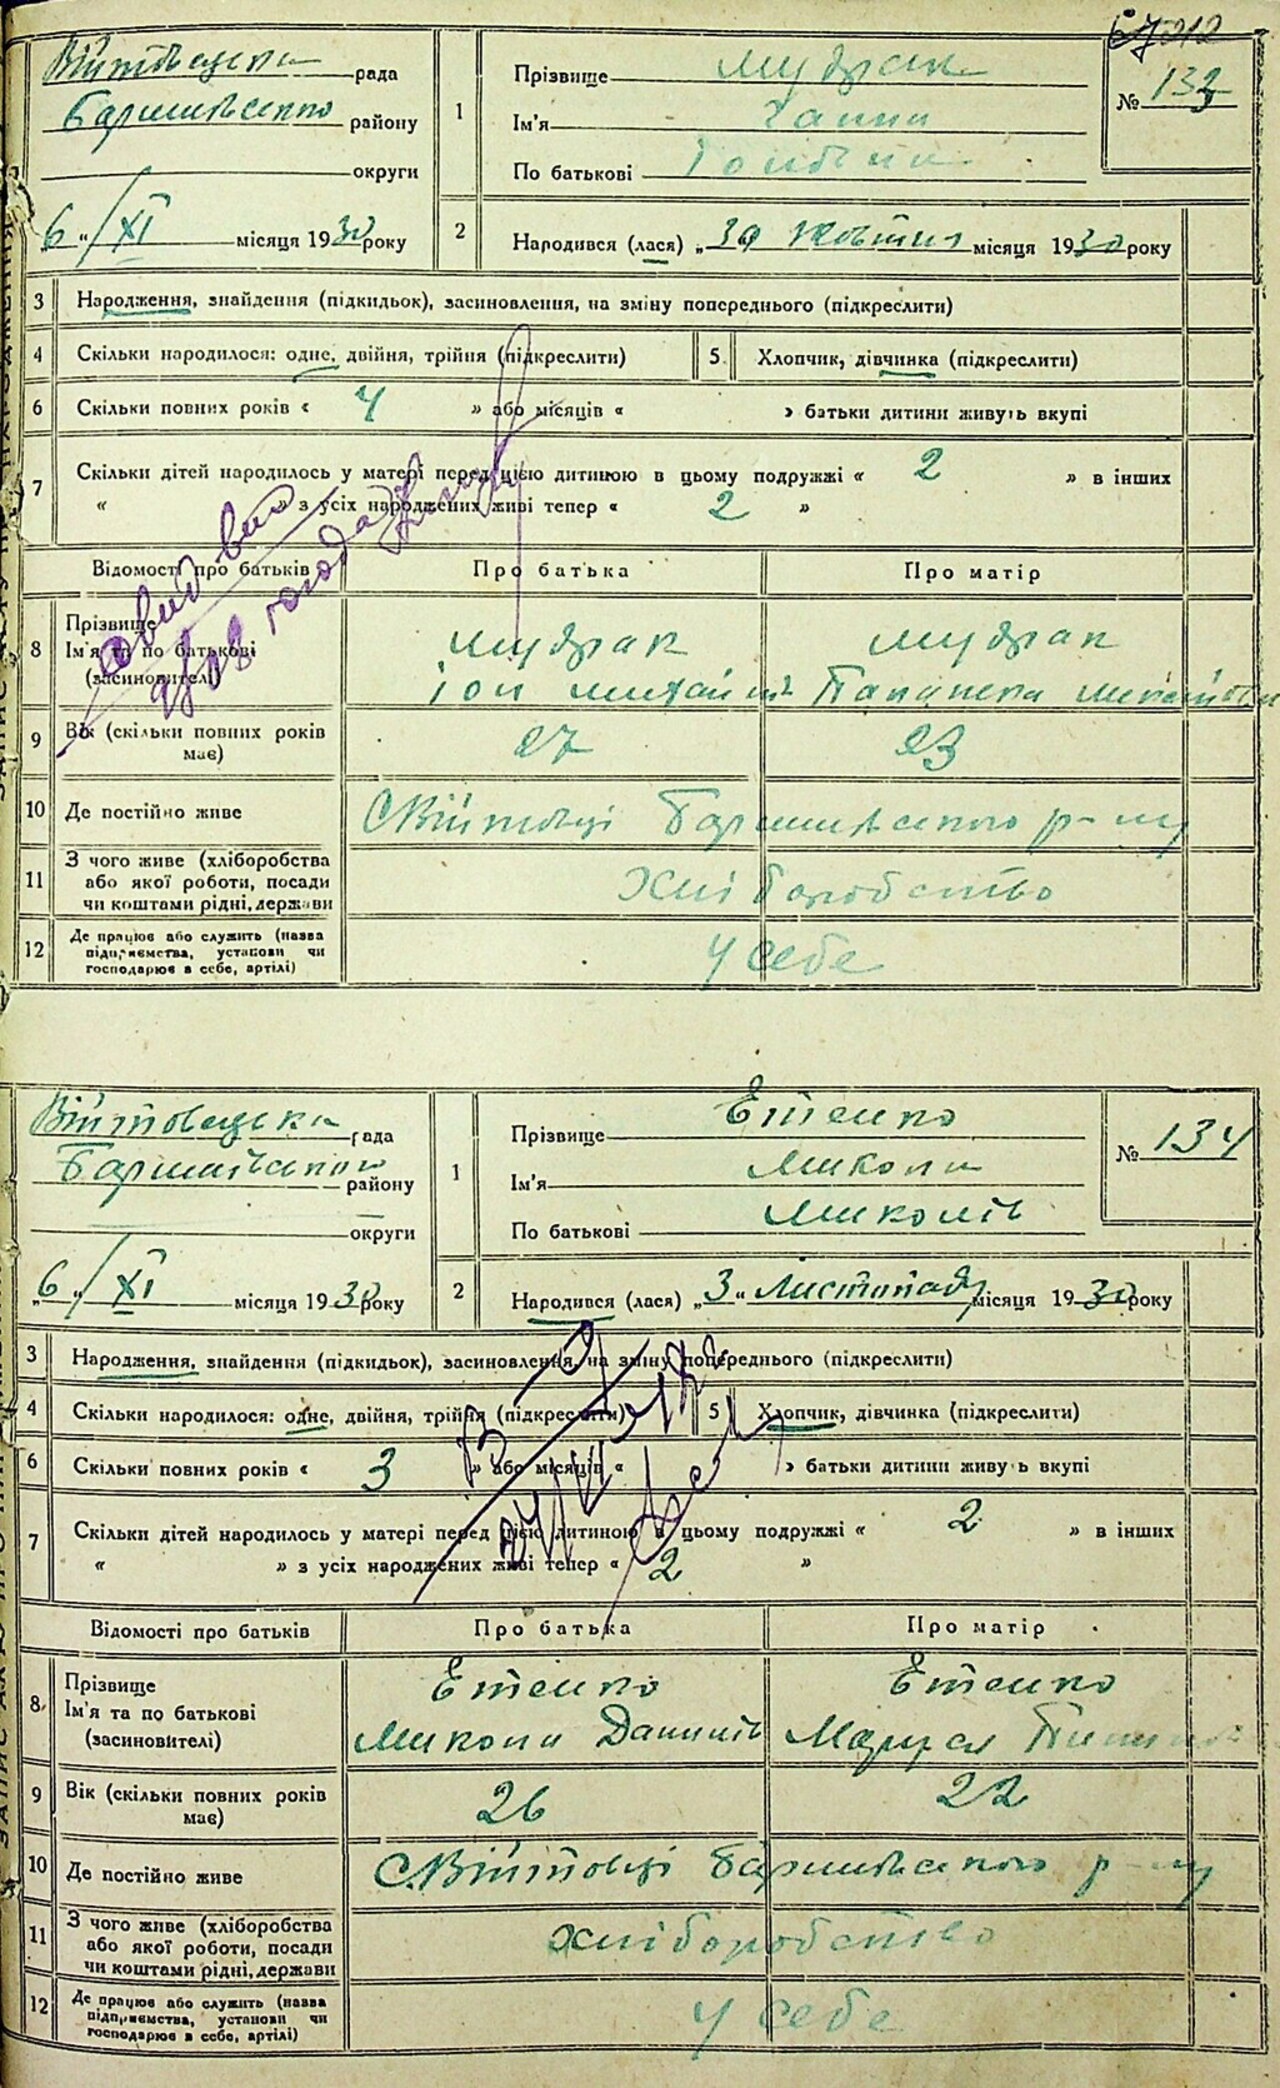 212
Війтовецька рада
Баришівського району
округи
„6“ XI місяця 1930 року
1
Прізвище Мудрак
Ім'я Ганна
По батькові Іонівна
№ 133
2
Народився (лася) „30 жовтня місяця 1930 року
3 Народження, знайдення (підкидьок), засиновлення, на зміну попереднього (підкреслити)
4 Скільки народилося: одне, двійня, трійня (підкреслити) 5 Хлопчик, дівчинка (підкреслити)
6 Скільки повних років « 4 » або місяців « » батьки дитини живуть вкупі
7 Скільки дітей народилось у матері перед цією дитиною в цьому подружжі « 2 » в інших
« » з усіх народжених живі тепер « 2 »
Відомості про батьків Про батька Про матір
8 Прізвище
Ім'я та по батькові
(засиновителі)
Мудрак Мудрак
Іон Михайлів
9 Вік (скільки повних років має) 27 23
10 Де постійно живе С Війтовці Баришівського р-ну
11 З чого живе (хліборобства
або якої роботи, посади
чи коштами рідні, держави
Хліборобство
12 Де працює або служить (назва
підприємства, установи чи
господарює в себе, артілі)
У себе
Війтовецька рада
Баришівського району
округи
„6“ XI місяця 1930 року
1
Прізвище Єтенко
Ім'я Микола
По батькові Миколів
№ 134
2
Народився (лася) „3“ Листопада місяця 1930 року
3 Народження, знайдення (підкидьок), засиновлення, на зміну попереднього (підкреслити)
4 Скільки народилося: одне, двійня, трійня (підкреслити) 5 Хлопчик, дівчинка (підкреслити)
6 Скільки повних років « 3 » або місяців « » батьки дитини живуть вкупі
7 Скільки дітей народилось у матері перед цією дитиною в цьому подружжі « 2 » в інших
« » з усіх народжених живі тепер « 2 »
Відомості про батьків Про батька Про матір
8 Прізвище
Ім'я та по батькові
(засиновителі)
Єтенко Єтенко
Микола Данилів Маруся
9 Вік (скільки повних років має) 26 22
10 Де постійно живе С. Війтовці Баришівського р-ну
11 З чого живе (хліборобства
або якої роботи, посади
чи коштами рідні, держави
Хліборобство
12 Де працює або служить (назва
підприємства, установи чи
господарює в себе, артілі)
У себе